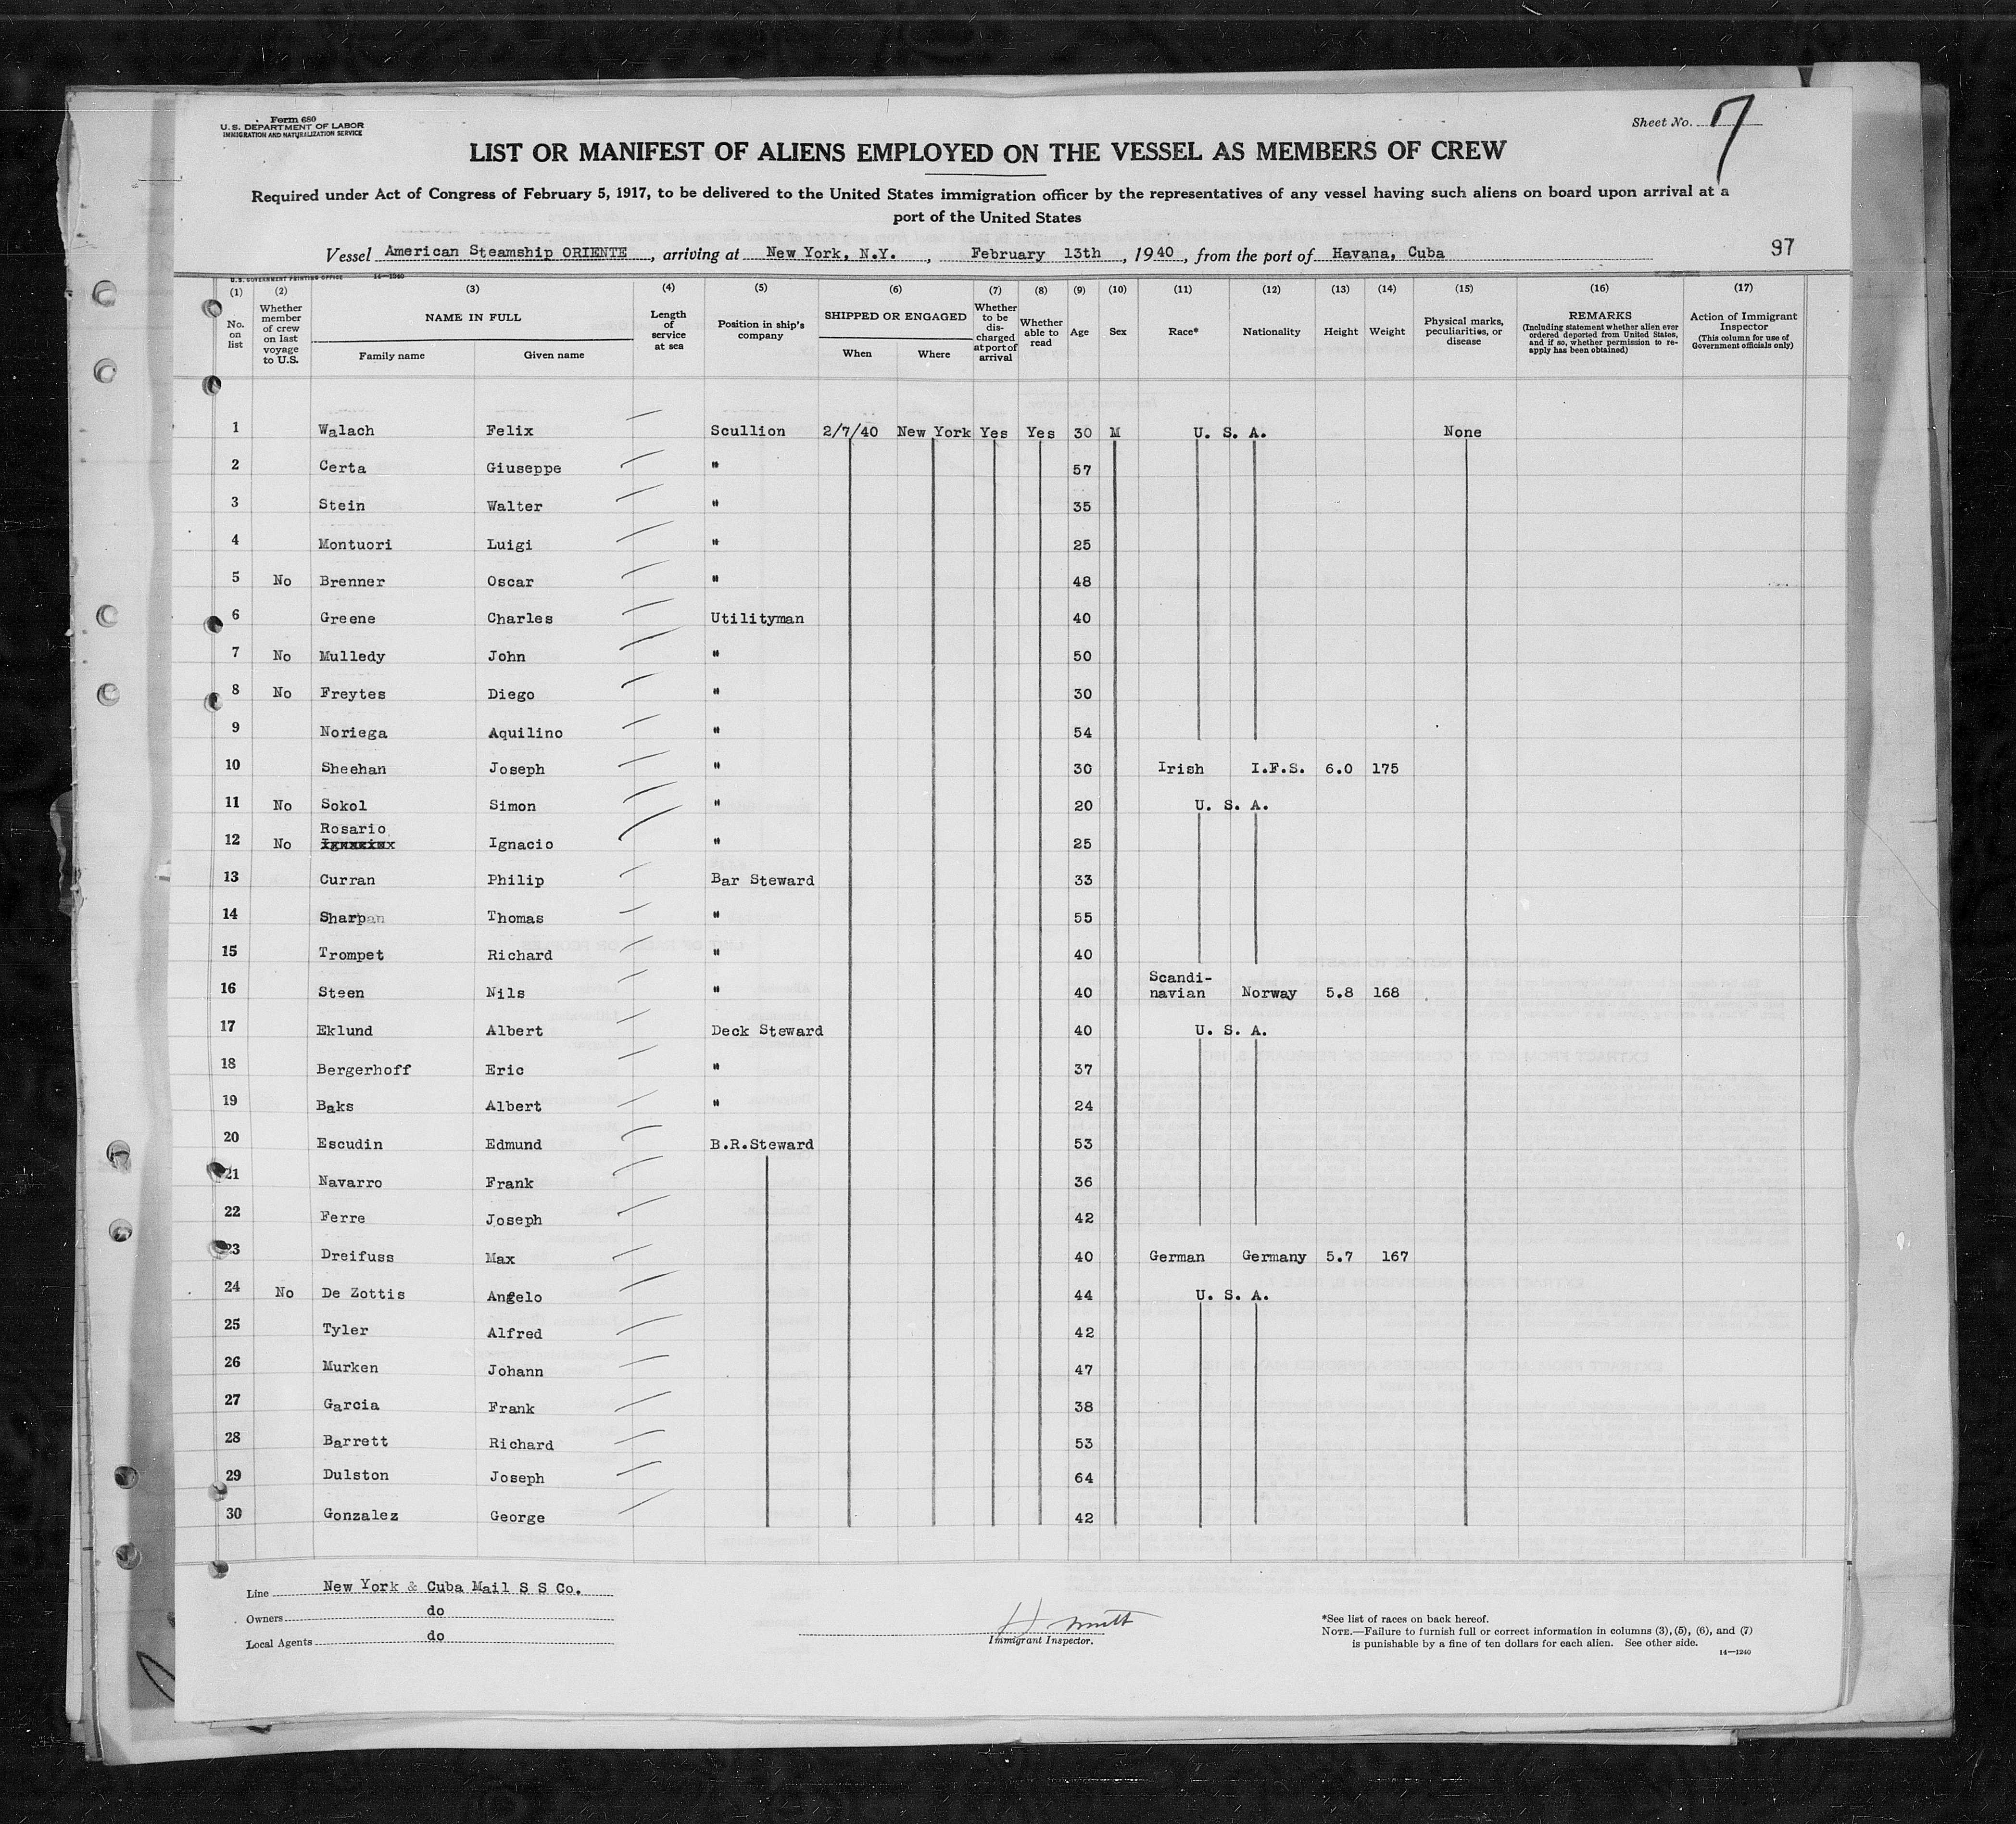 Form 680
U. S. DEPARTMENT OF LABOR
IMMIGRATION AND NATURALIZATION SERVICE
Sheet No. 7
LIST OR MANIFEST OF ALIENS EMPLOYED ON THE VESSEL AS MEMBERS OF CREW
Required under Act of Congress of February 5, 1917, to be delivered to the United States immigration officer by the representatives of any vessel having such aliens on board upon arrival at a
port of the United States
Vessel American Steamship ORIENTE, arriving at New York, N.Y., February 13th, 1940, from the port of Havana, Cuba
97
U.S. GOVERNMENT PRINTING OFFICE 14—1240
(1) (2) (3) (4) (5) (6) (7) (8) (9) (10) (11) (12) (13) (14) (15) (16) (17)
No. on list
Whether member of crew on last voyage to U.S.
NAME IN FULL
Family name Given name
Length of service at sea
Position in ship's company
SHIPPED OR ENGAGED
When Where
Whether to be discharged at port of arrival
Whether able to read
Age
Sex
Race*
Nationality
Height
Weight
Physical marks, peculiarities, or disease
REMARKS
(Including statement whether alien ever ordered deported from United States, and if so, whether permission to reapply has been obtained)
Action of Immigrant Inspector
(This column for use of Government officials only)
1 Walach Felix Scullion 2/7/40 New York Yes Yes 30 M U. S. A. None
2 Certa Giuseppe " 57
3 Stein Walter " 35
4 Montuori Luigi " 25
5 No Brenner Oscar " 48
6 Greene Charles Utilityman 40
7 No Mulledy John " 50
8 No Freytes Diego " 30
9 Noriega Aquilino " 54
10 Sheehan Joseph " 30 Irish I.F.S. 6.0 175
11 No Sokol Simon " 20 U. S. A.
12 No Rosario Ignacio " 25
13 Curran Philip Bar Steward 33
14 Sharpan Thomas " 55
15 Trompet Richard " 40
16 Steen Nils " 40 Scandi-navian Norway 5.8 168
17 Eklund Albert Deck Steward 40 U. S. A.
18 Bergerhoff Eric " 37
19 Baks Albert " 24
20 Escudin Edmund B.R.Steward 53
21 Navarro Frank 36
22 Ferre Joseph 42
23 Dreifuss Max 40 German Germany 5.7 167
24 No De Zottis Angelo 44 U. S. A.
25 Tyler Alfred 42
26 Murken Johann 47
27 Garcia Frank 38
28 Barrett Richard 53
29 Dulston Joseph 64
30 Gonzalez George 42
Line New York & Cuba Mail S S Co.
Owners do
Local Agents do
Immigrant Inspector.
*See list of races on back hereof.
NOTE.—Failure to furnish full or correct information in columns (3), (5), (6), and (7)
is punishable by a fine of ten dollars for each alien. See other side.
14—1240